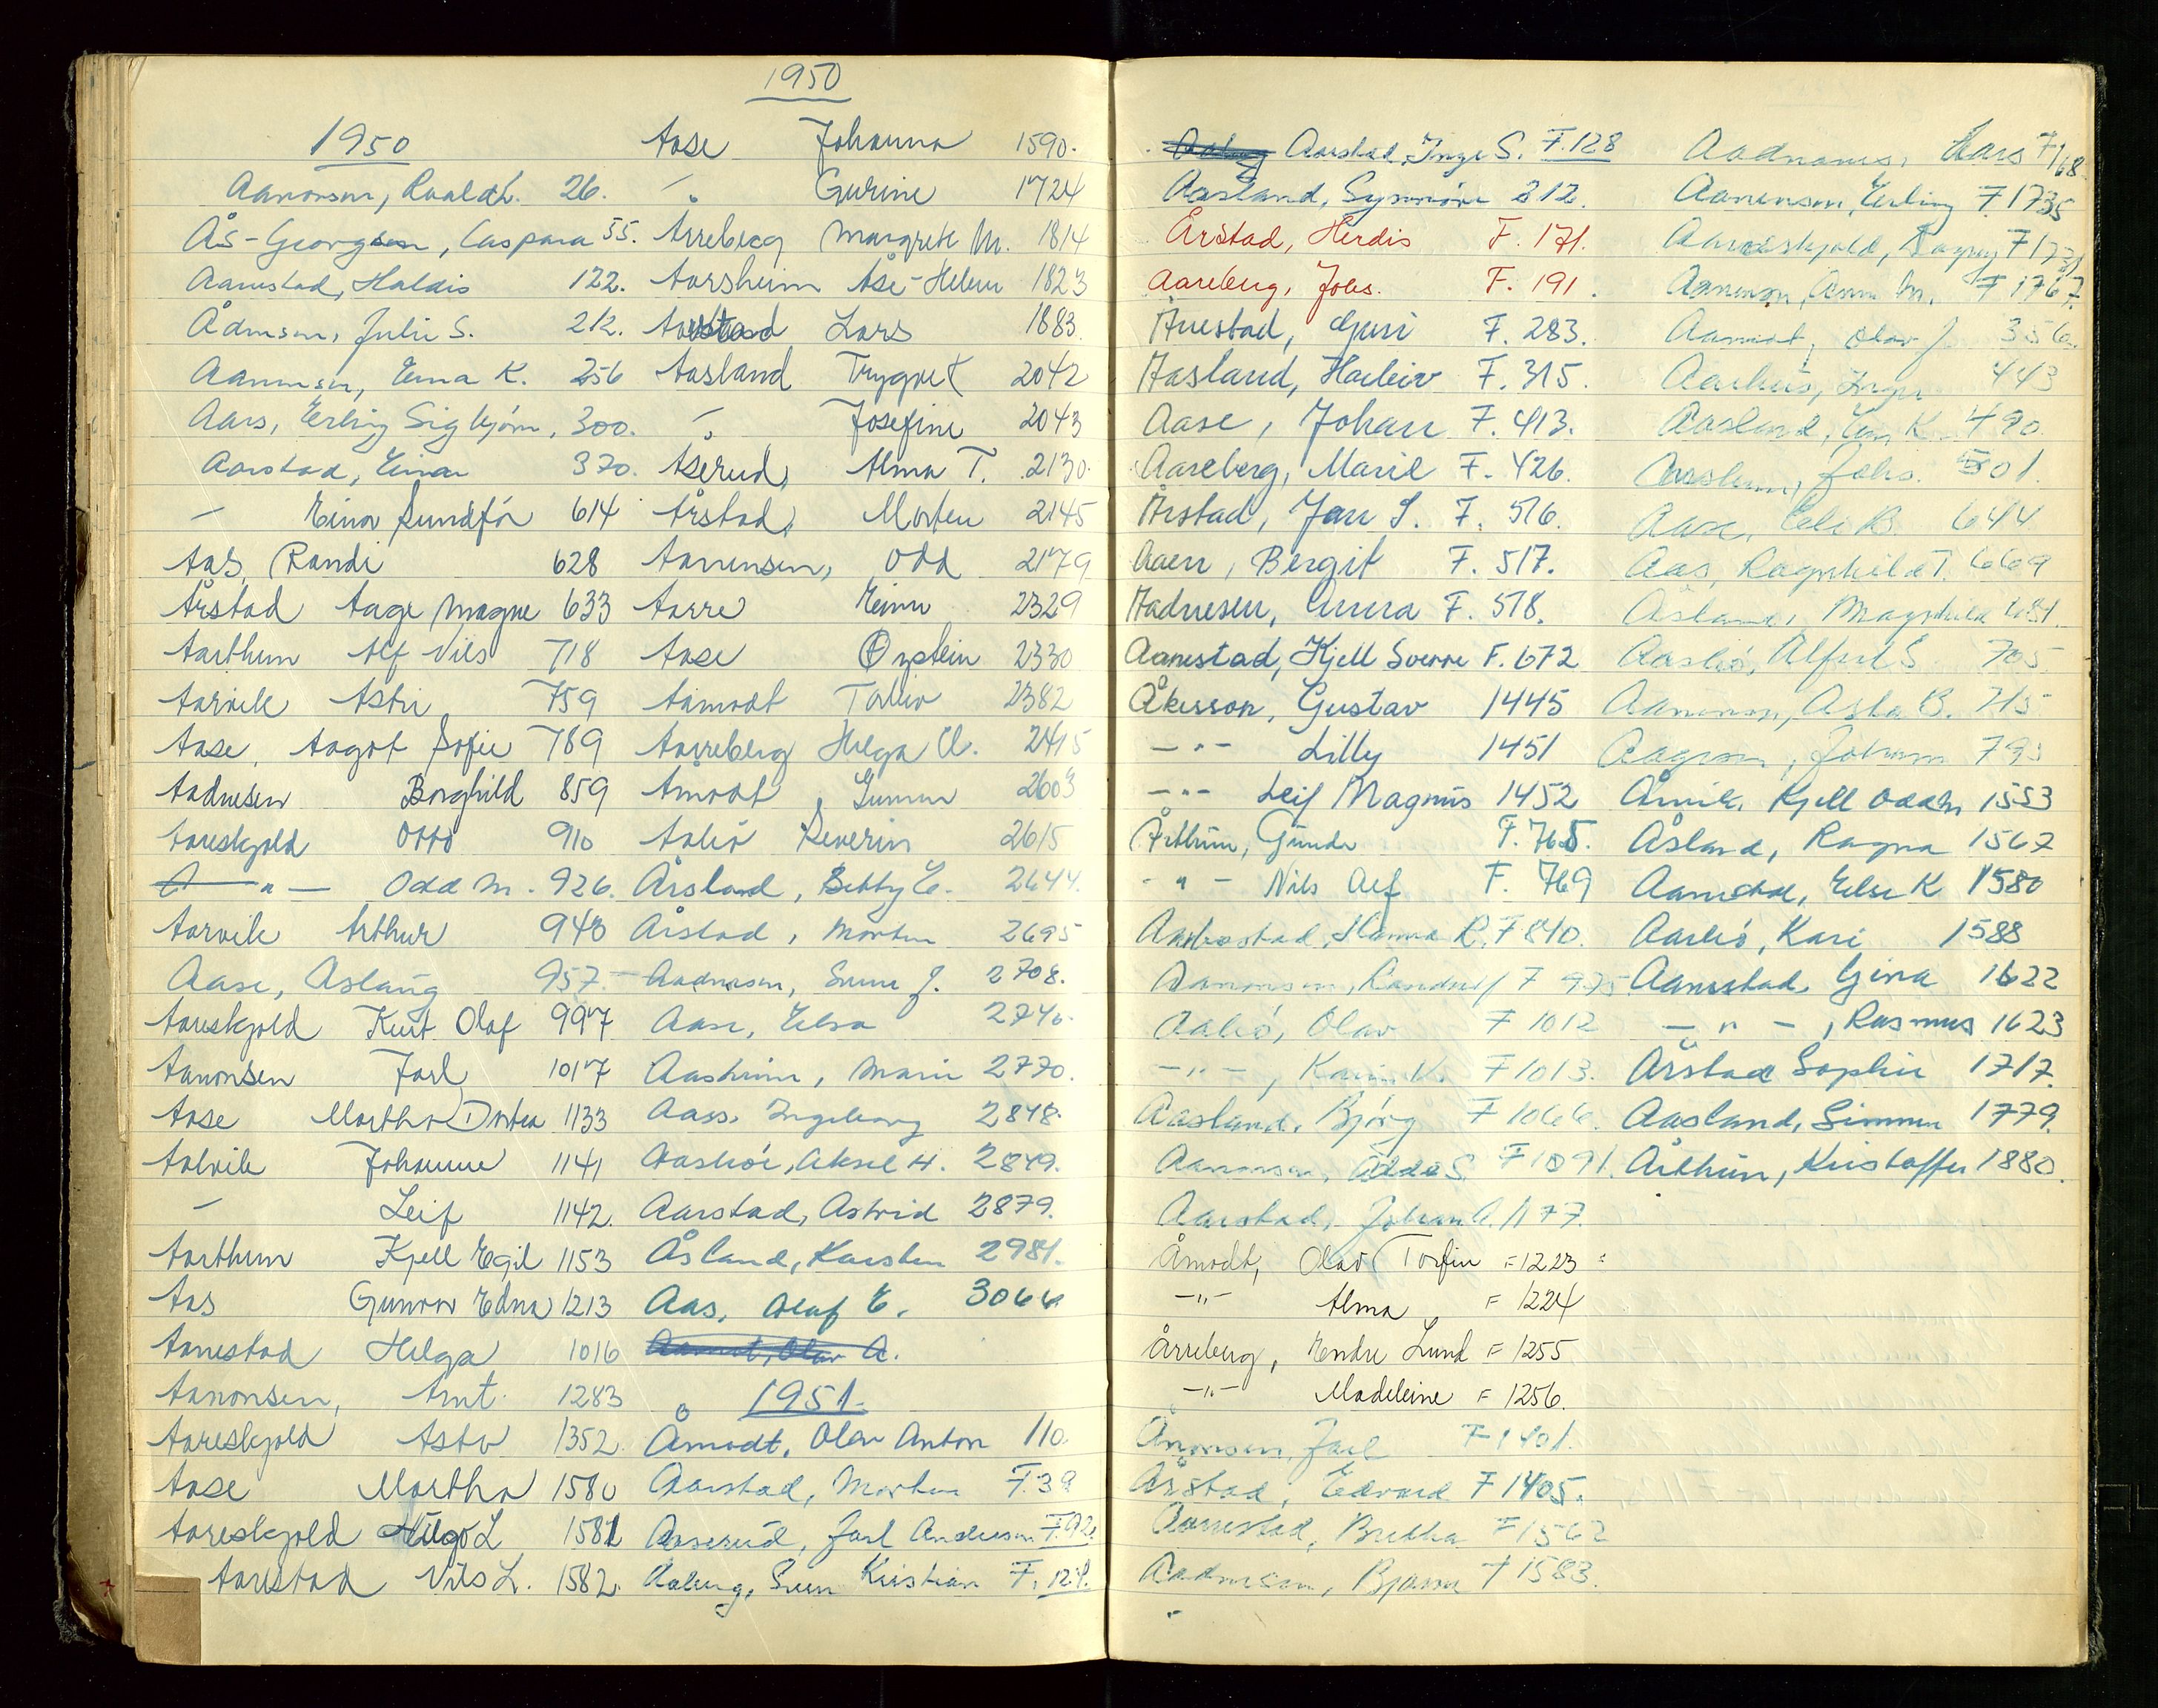 1950
1950
Aanonsen, Roald L. 26.
Ås-Georgsen, Caspara 55.
Aanestad, Haldis 122.
Ådnesen, Julie S. 212.
Aanensen, Erna K. 256
Aars, Erling Sigbjörn, 300.
Aarstad, Einar 370.
" Einar Sundför 614
Aas, Randi 628
Årstad Aage Magne 633
Aarthun Alf Nils 718
Aarvik Astri 759
Aase, Aagot Sofie 789
Aadnesen Borghild 859
Aareskjold Otto 910
— " — Odd M. 926.
Aarvik Arthur 948
Aase, Aslaug 957
Aareskjold Kurt Olaf 997
Aanonsen Jarl 1017
Aase Martha Dortea 1133
Aalvik Johanne 1141
" Leif 1142.
Aarthun Kjell Egil 1153
Aas Gunvor Edna 1213
Aanestad Helga 1016
Aanonsen, Arnt 1283
Aareskjold Astv 1352
Aase Martha 1580
Aareskjold Hugo L 1581
Aarestad Nils L. 1582.
Aase Johanna 1590.
" Gurine 1724
Årreberg Margrete M. 1814
Aarsheim Åse-Helene 1823
Aarstad Lars 1883.
Aasland Trygve 2042
" Josefine 2043
Åserud, Alma T. 2130.
Årstad, Morten 2145
Aanensen, Odd 2179
Aarre Einar 2329
Aase Øystein 2330
Aamodt Tolleiv 2382
Aarreberg Helga 2415
Åmodt, Gunnar 2603
Aaleö Severin 2615
Årsland, Betty E. 2644.
Årstad, Morten 2695
Aadnesen, Sven J. 2708.
Aase, Elsa 2746.
Aasheim, Marie 2770.
Aass, Ingeborg 2848.
Aasheie, Aksel H. 2849.
Aarstad, Astrid 2879.
Åsland, Karsten 2981.
Aas, Olaf E. 3066
Aamot, Olav A.
1951.
Åmodt, Olav Anton 110.
Aarstad, Morten F. 39
Aaserud, Jarl Andersen F. 92.
Aaberg, Sven Kristian F. 121.
Aarstad, Inge S. F. 128
Aasland, Synnöve 212.
Årstad, Herdis F. 171.
Aareberg, Johs. F. 191.
Auestad, Guri F. 283.
Aasland, Harleiv F. 315.
Aase, Johan F. 413.
Aareberg, Marie F. 426.
Årstad, Jan S. F. 516.
Aaen, Bergit F. 517.
Aadnesen, Anna F. 518.
Aanestad, Kjell Sverre F. 672
Åkesson, Gustav 1445
— " — Lilly 1451
— " — Leif Magnus 1452
Årthun, Gunda F. 768.
— " — Nils Alf F. 769
Hanna R. F 840.
Aanonsen, Randulf F 935.
Aaleö, Olav F 1012
— " —, Karin K. F 1013.
Aasland, Bjørg F 1066.
Aanonsen, Odda S. F 1091.
Aarstad, Johan A. 1177.
Åmodt, Olav Torfin F 1223
— " — Alma F 1224
Årreberg, Endre Lund F 1255
— " — Madeleine F 1256.
Ånonsen, Jarl F 1401.
Årstad, Edvard F 1405.
Aanestad, Bertha F 1562
Aadnesen, Bjarne F 1583.
Aadnanes, Lars F 168
Aanenson, Erling F. 1735
Aareskjold, Dagny F 1731
Aanenson, Anna M. F 1767.
Aamodt, Olav J. 356.
Aarhus, Inger 443
Aasland, Einar K. 490.
Johs. 501.
Aase, Eli B. 644
Aas, Ragnhild T. 669
Åsland, Magnhild 681.
Aasheö, Alfred S. 705
Aanenson, Asta B. 715
Johan 795
Åmvik, Kjell Odd M 1553
Åsland, Ragna 1567
Aanestad, Else K 1580
Aarleö, Kari 1588
Aanestad, Gina 1622
— " —, Rasmus 1623
Årstad Sophie 1717.
Aasland, Simon 1779.
Årthun, Kristoffer 1880.